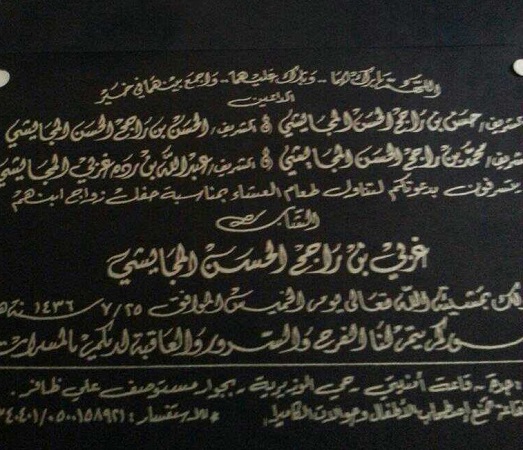 اللهم بارك لهما .. وبارك عليهما .. واجمع بينهما في خير
الداعين
الشريف/ حسن بن راجح الحسن المجايشي & الشريف/ الحسن بن راجح الحسن المجايشي
الشريف/ محمد بن راجح الحسن المجايشي & الشريف/ عبدالله بن رده غزلي المجايشي
يتشرفون بدعوتكم لتناول طعام العشاء بمناسبة حفل زواج ابنهم
الشاب
غزلي بن راجح الحسن المجايشي
بمشيئة الله تعالى يوم الخميس الموافق ٧/٢٥ سنة ١٤٣٦هـ
يتم لنا الفرح والسرور والعاقبة لديكم بالمسرات
جدة - قاعة - حي الوزيرية - بجوار مستوصف علي ظافر
يمنع إصطحاب الأطفال وجوالات الكاميرا * للاستفسار: ٠٥٠٠١٥٨٩٢١/